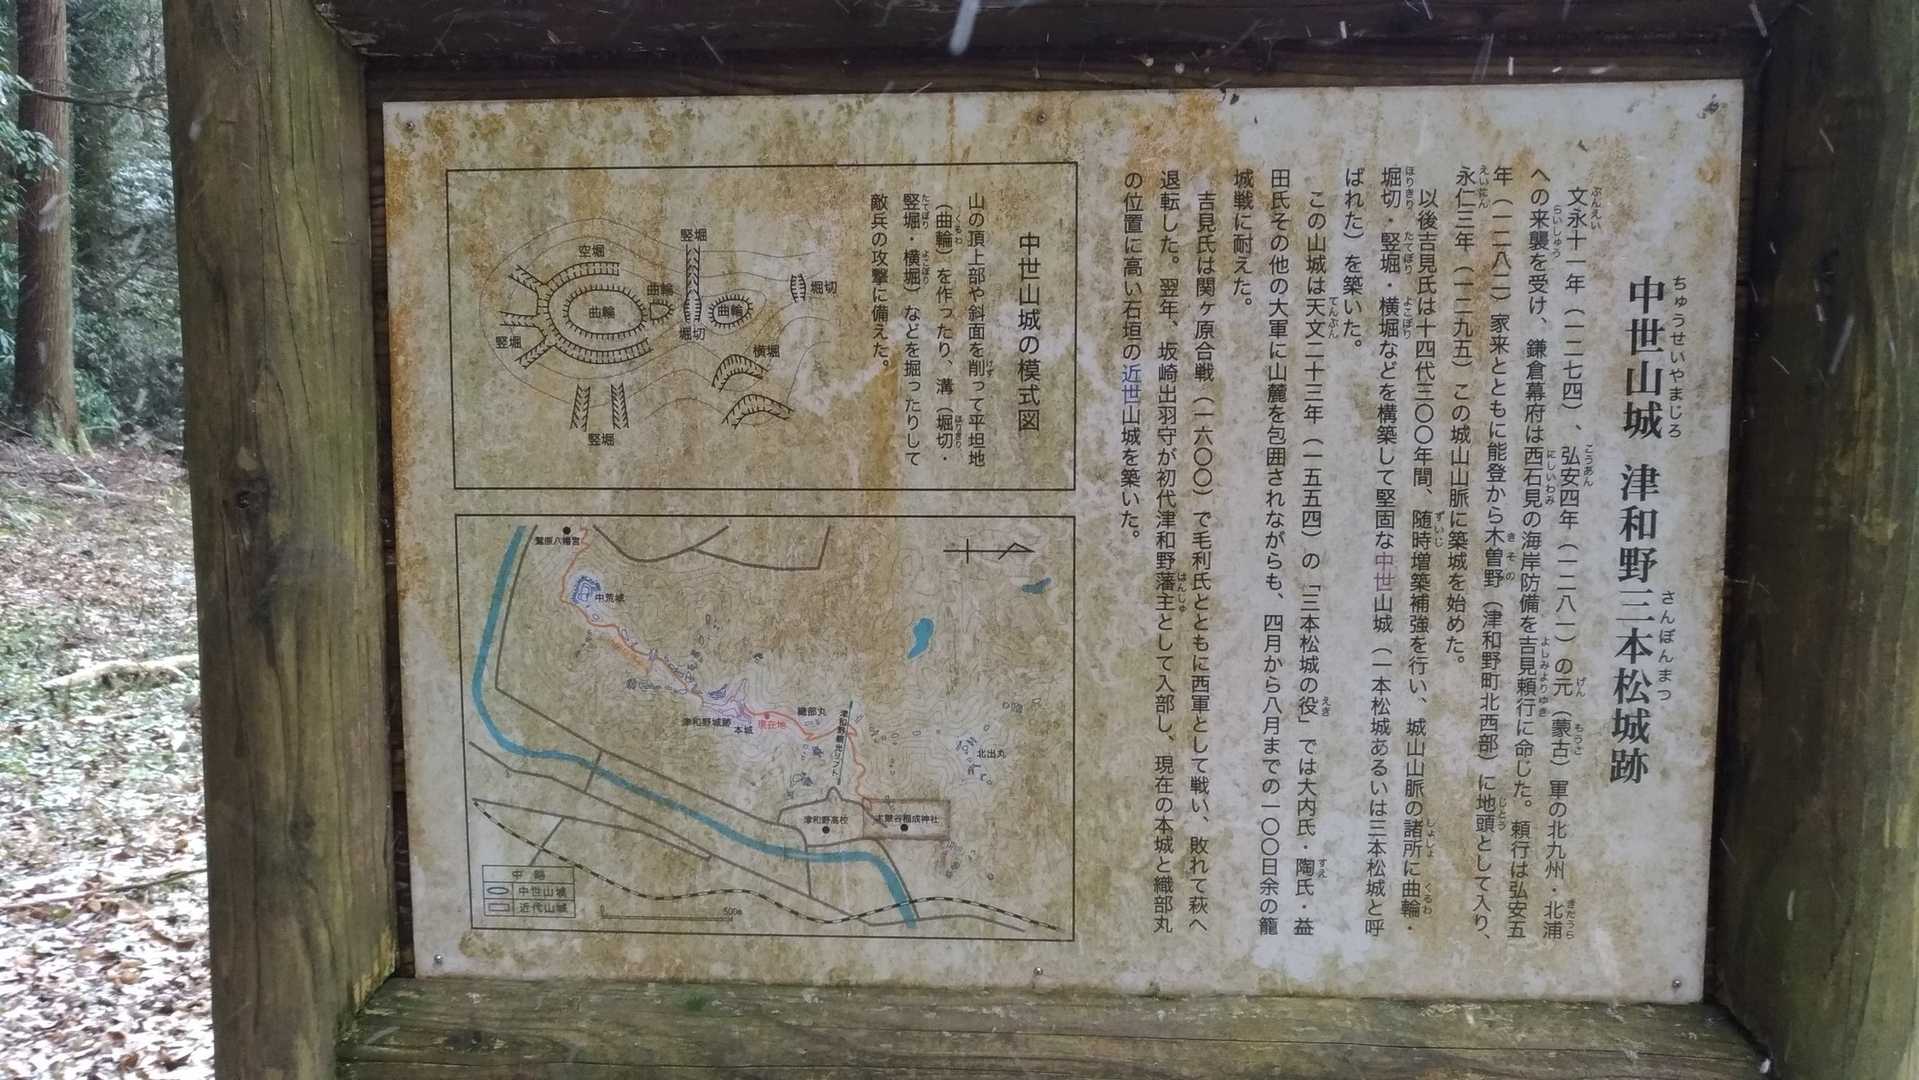 中世山城 津和野三本松城跡
ちゅうせいやまじろ
さんぼんまつ
文永十一年（一二七四）、弘安四年（一二八一）の元（蒙古）軍の北九州・北浦
ぶんえい
こうあん
げん
もうこ
きたうら
への来襲を受け、鎌倉幕府は西石見の海岸防備を吉見頼行に命じた。頼行は弘安五
らいしゅう
にしいわみ
よしみよりゆき
年（一二八二）家来とともに能登から木曽野（津和野町北西部）に地頭として入り、
きその
じとう
永仁三年（一二九五）この城山山脈に築城を始めた。
えいにん
以後吉見氏は十四代三〇〇年間、随時増築補強を行い、城山山脈の諸所に曲輪・
ずいじ
しょしょ
くるわ
堀切・竪堀・横堀などを構築して堅固な中世山城（一本松城あるいは三本松城と呼
ほりきり
たてぼり
よこぼり
ばれた）を築いた。
この山城は天文二十三年（一五五四）の「三本松城の役」では大内氏・陶氏・益
てんぶん
えき
すえ
田氏その他の大軍に山麓を包囲されながらも、四月から八月までの一〇〇日余の籠
城戦に耐えた。
吉見氏は関ヶ原合戦（一六〇〇）で毛利氏とともに西軍として戦い、敗れて萩へ
退転した。翌年、坂崎出羽守が初代津和野藩主として入部し、現在の本城と織部丸
はんしゅ
の位置に高い石垣の近世山城を築いた。
中世山城の模式図
山の頂上部や斜面を削って平坦地
けず
（曲輪）を作ったり、溝（堀切・
くるわ
ほりきり
竪堀・横堀）などを掘ったりして
たてぼり
よこぼり
敵兵の攻撃に備えた。
竪堀
空堀
曲輪
堀切
曲輪
曲輪
堀切
竪堀
横堀
竪堀
鷲原八幡宮
中荒城
織部丸
津和野城跡
本城
現在地
津和野観光リフト
北出丸
津和野高校
太皷谷稲成神社
中世山城
近代山城
0
500m